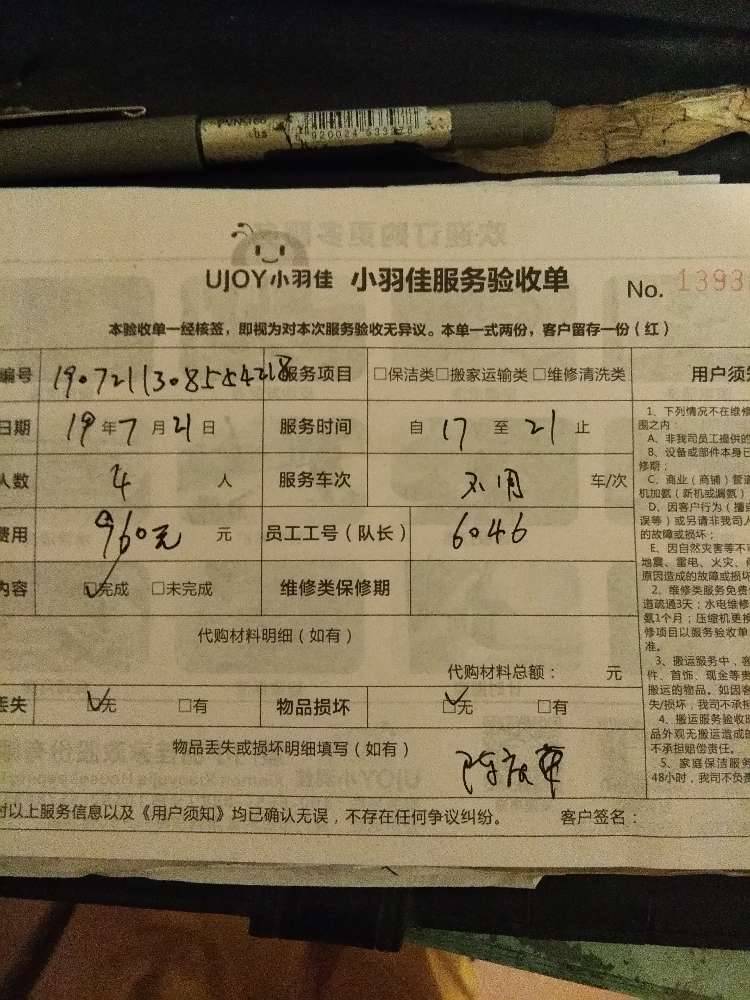 6920024 633276
UJOY小羽佳 小羽佳服务验收单 No. 1393
本验收单一经核签，即视为对本次服务验收无异议。本单一式两份，客户留存一份（红）
编号 1907211308554218 服务项目 □保洁类□搬家运输类□维修清洗类 用户须知
日期 19年7月21日 服务时间 自 17 至 21 止
人数 4 人 服务车次 不用 车/次
费用 960元 元 员工工号（队长） 6046
内容 ☑完成 □未完成 维修类保修期
代购材料明细（如有）
代购材料总额： 元
丢失 ☑无 □有 物品损坏 ☑无 □有
物品丢失或损坏明细填写（如有）
对以上服务信息以及《用户须知》均已确认无误，不存在任何争议纠纷。 客户签名：
1、下列情况不在维修
围之内：
A、非我司员工提供的
B、设备或部件本身已
修期；
C、商业（商铺）管道
机加氨（新机或漏氨）
D、因客户行为（擅自
误等）或另请非我司人
的故障或损坏；
E、因自然灾害等不可
地震、雷电、火灾、
原因造成的故障或损坏
2、维修类服务免费
道疏通3天；水电维修
氨1个月；压缩机更换
修项目以服务验收单
准。
3、搬运服务中，客
件、首饰、现金等贵
搬运的物品。如因客
失/损坏，我司不承担
4、搬运服务验收
品外观无搬运造成的
不承担赔偿责任。
5、家庭保洁服务
48小时，我司不负责